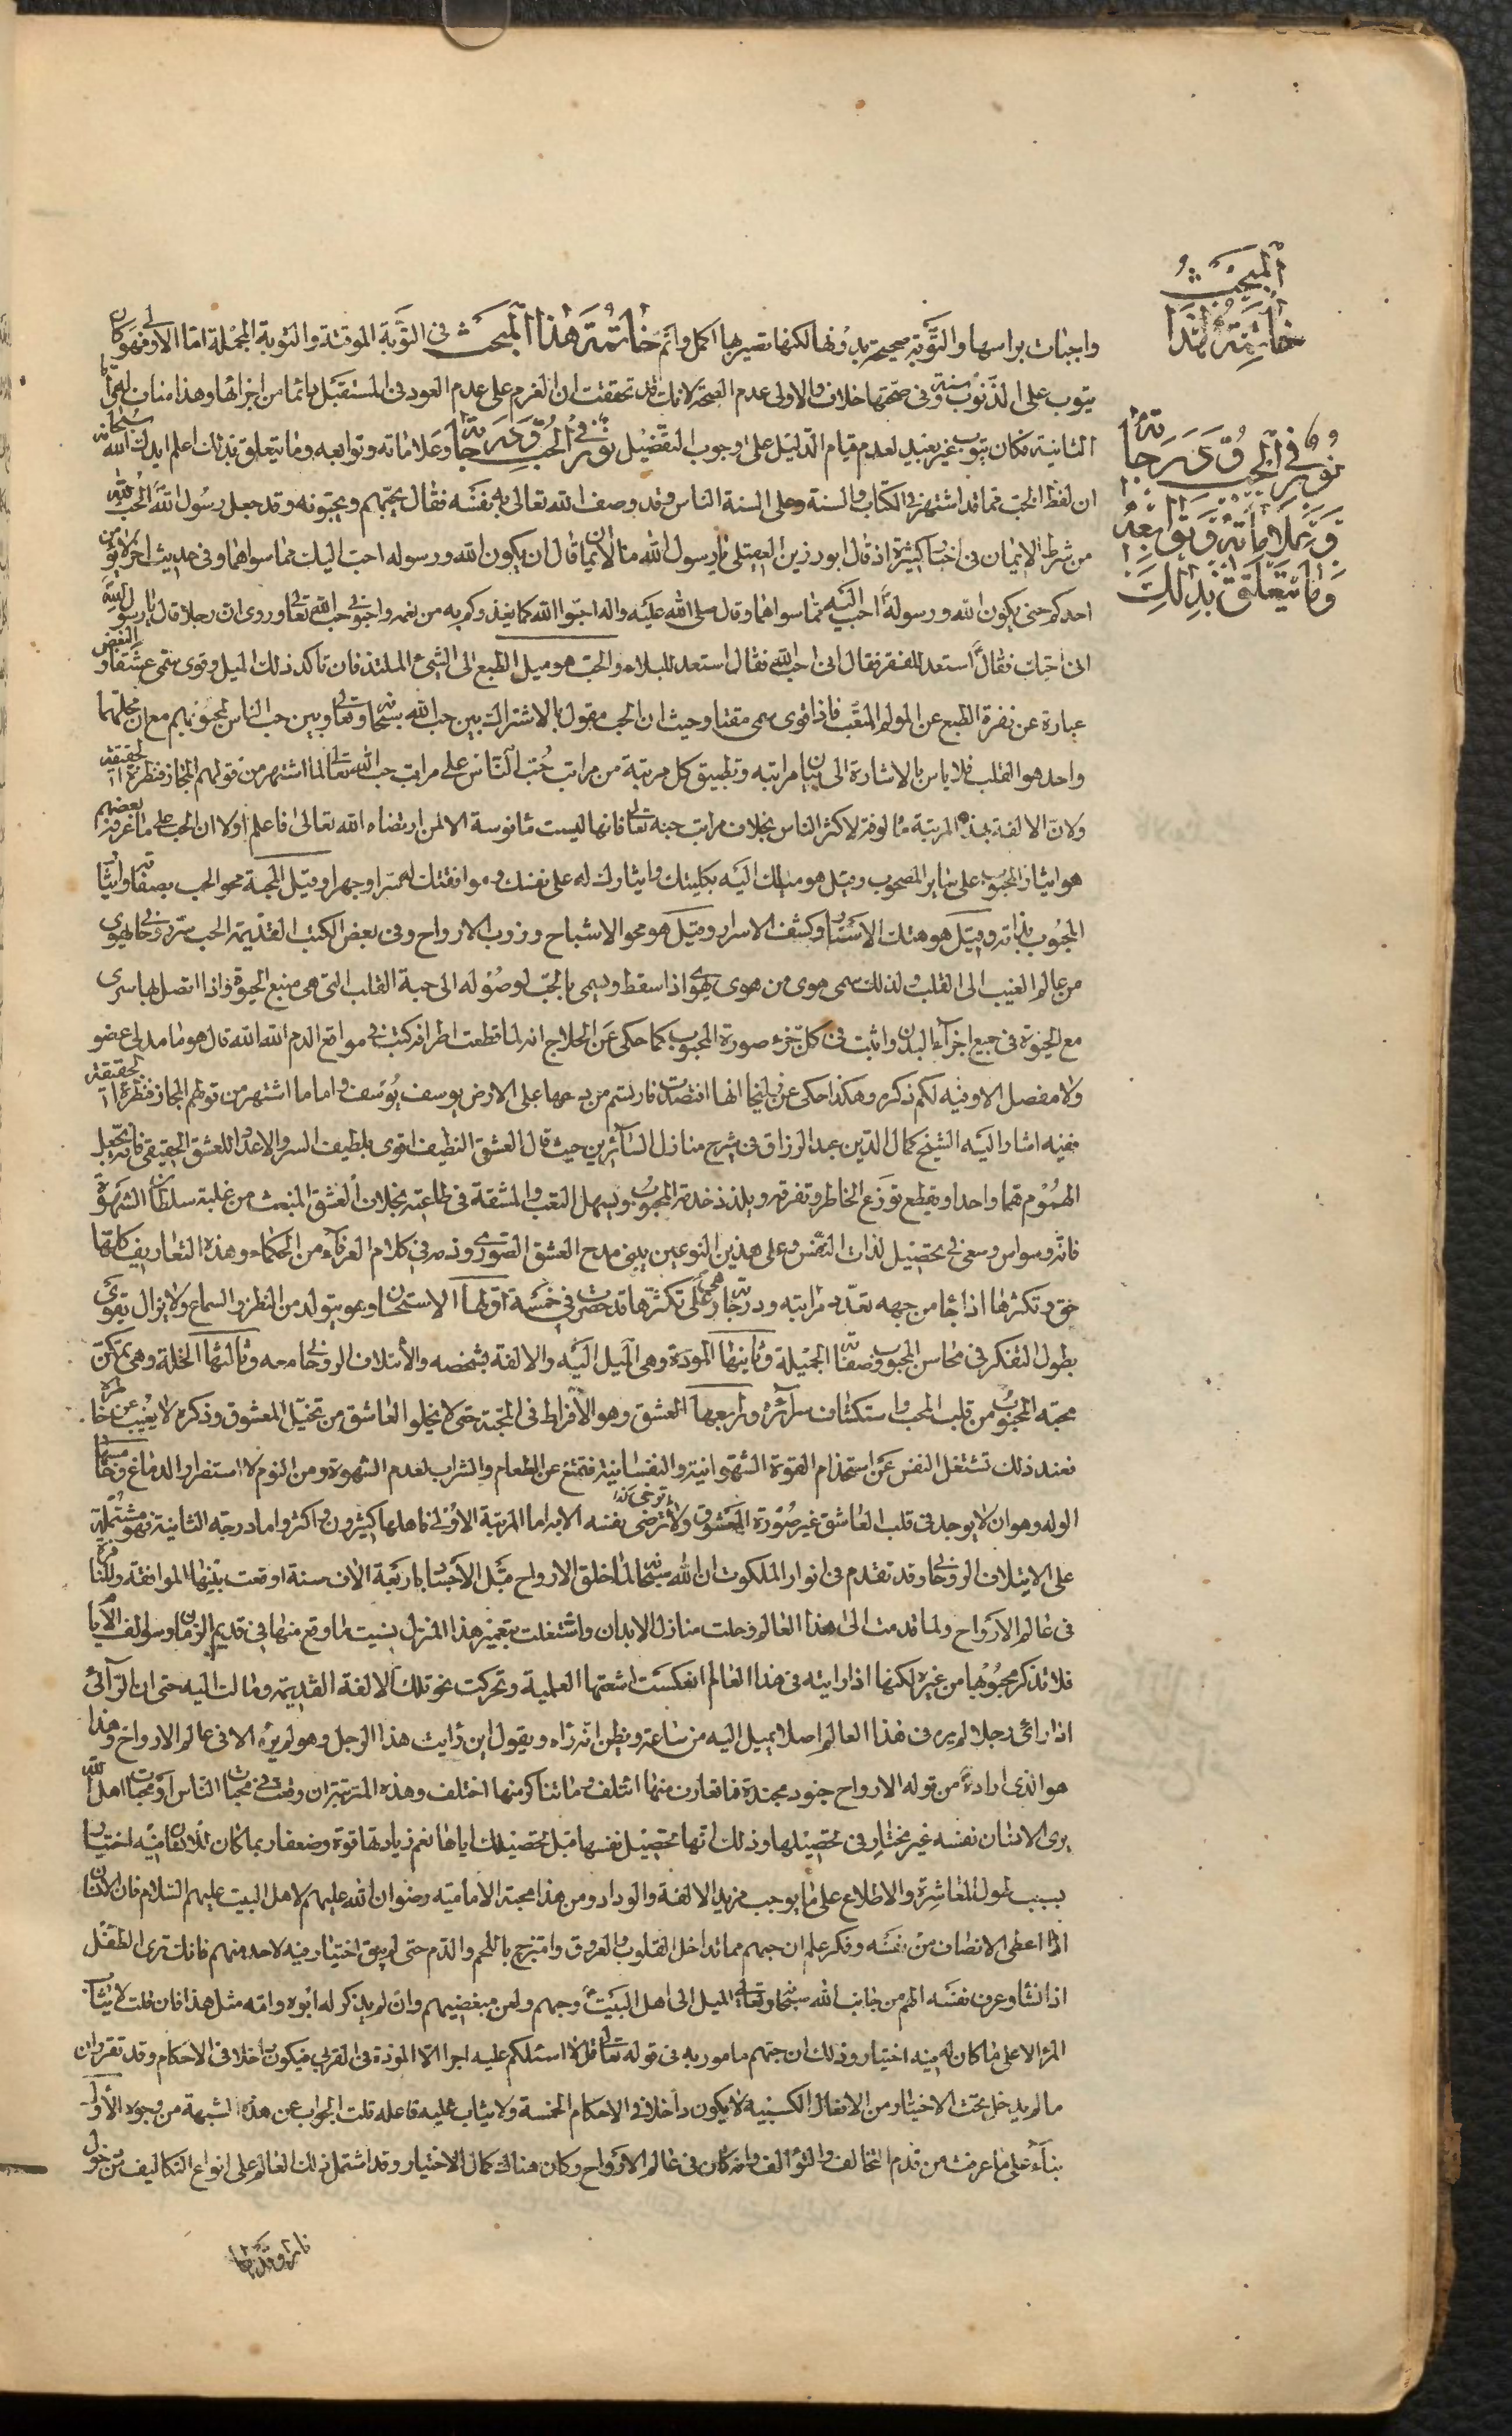 المبحث
خاتمة لهذا
نور في الحب ودرجاته
وعلاماته وتوابعه
وما يتعلق بذلك
واجبات براسها والتوبة صحيحة بدونها لكنها تصير بها اكمل واتم خاتمة هذا المبحث في التوبة الموقتة والتوبة المجملة اما الاولى فهو كان
يتوب على الذنوب سنة وفي صحتها خلاف والاولى عدم الصحة لانك قد تحققت ان العزم على عدم العود في المستقبل دائما من اجزائها وهذا مناف لها واما
الثانية فكان يتوب غير بعيد لعدم قيام الدليل على وجوب التفصيل نور في الحب ودرجاته وعلاماته وتوابعه وما يتعلق بذلك اعلم ايدك الله سبحانه
ان لفظ الحب مما قد اشتهر في الكتاب والسنة وعلى السنة الناس وقد وصف الله تعالى به نفسه فقال يحبهم ويحبونه وقد جعل رسول الله الحب لله
من شرط الايمان في اخبار كثيرة اذ قال ابو رزين العقيلي يا رسول الله ما الايمان قال ان يكون الله ورسوله احب اليك مما سواهما وفي حديث اخر لا يؤمن
احدكم حتى يكون الله ورسوله احب اليه مما سواهما وقال صلى الله عليه واله احبوا الله كما يغذوكم به من نعمه واحبوني لحب الله تعالى وروى ان رجلا قال يا رسول الله
اني احبك فقال استعد للفقر فقال اني احب الله فقال استعد للبلاء والحب هو ميل الطبع الى الشيء الملتذ فان تاكد ذلك الميل وقوى سمى عشقا والبغض
عبارة عن نفرة الطبع عن المولم المتعب فاذا قوى سمى مقتا وحيث ان الحب مقول بالاشتراك بين حب الله سبحانه وتعالى وبين حب الناس لمحبوبهم مع ان محلهما
واحد هو القلب فلا باس بالاشارة الى بيان مراتبه وتطبيق كل مرتبة من مراتب حب الناس على مراتب حب الله تعالى لما اشتهر من قولهم المجاز قنطرة الحقيقة
ولان الالفة بهذه المرتبة مالوفة لاكثر الناس بخلاف مراتب حبه تعالى فانها ليست مانوسة الا لمن ارتضاه الله تعالى فاعلم اولا ان الحب على ما عرفه بعضهم
هو ايثار المحبوب على ساير المصحوب وقيل هو ميلك اليه بكليتك وايثارك له على نفسك وموافقتك له سرا وجهرا وقيل المحبة محو الحب بصفاته واثبات
المحبوب بذاته وقيل هو هتك الاستار وكشف الاسرار وقيل هو محو الاشباح وذوب الارواح وفي بعض الكتب القديمة الحب سر روحاني يهوى
من عالم الغيب الى القلب ولذلك سمى هوى من هوى يهوى اذا سقط ويسمى بالحب لوصوله الى حبة القلب التي هي منبع الحيوة واذا اتصل بها سرى
مع الحيوة في جميع اجزاء البدن واثبت في كل جزء صورة المحبوب كما حكى عن الحلاج انه لما قطعت اطرافه كتب في مواقع الدم الله الله قال هو ما قد لي عضو
ولا مفصل الا وفيه لكم ذكر وهكذا حكى عن زليخا انها افتصدت فارتسم من دمها على الارض يوسف يوسف واما ما اشتهر من قولهم المجاز قنطرة الحقيقة
ففيه اشار اليه الشيخ كمال الدين عبد الرزاق في شرح منازل السائرين حيث قال العشق النظيف اقوى بلطيف السر والاعداد للعشق الحقيقي فانه يجعل
الهموم هما واحدا ويقطع توزع الخاطر وتفرقه ويلذذ خدمة المحبوب ويسهل التعب والمشقة في طاعته بخلاف العشق المنبعث من غلبة سلطان الشهوة
فانه وسواس وسعى في تحصيل لذات النفس وعلى هذين النوعين يبنى مدح العشق الصوري وذمه في كلام العرفاء من الحكماء وهذه التعاريف كلها
حق وتكثرها اذا جاء من جهه تعدد مراتبه ودرجاته وهي على تكثرها قد حصرت في خمسة اولها الاستحسان وهو يتولد من النظر والسماع ولا يزال يقوى
بطول التفكر في محاسن المحبوب وصفاته الجميلة وثانيها المودة وهي الميل اليه والالفة بشخصه والائتلاف الروحاني معه وثالثها الخلة وهي تمكن
محبة المحبوب من قلب المحب واستكشاف سرائره ورابعها العشق وهو الافراط في المحبة حتى لا يخلو العاشق من تخيل المعشوق وذكره لا يغيب عن خاطره
فعند ذلك تشتغل النفس عن استخدام القوة الشهوانية والنفسانية فتمتنع عن الطعام والشراب لعدم الشهوة ومن النوم لاستضرار الدماغ وخامسها
الوله وهو ان لا يوجد في قلب العاشق غير صورة المعشوق ولا ترضى نفسه الا به اما المرتبة الاولى فاهلها كثيرون واكثر واما درجة الثانية فهو مشتملة
على الايتلاف الروحاني وقد تقدم في انوار الملكوت ان الله سبحانه لما خلق الارواح قبل الاجساد باربعة الاف سنة اوقعت بينها الموافقة والمنافرة
في عالم الارواح ولما قدمت الى هذا العالم وحلت منازل الابدان واشتغلت بتعمير هذا المنزل نسيت ما وقع منها في قديم الزمان وسوالف الايام
فلا تذكر محبوبها من غيره لكنها اذا رايته في هذا العالم انعكست اشعتها العلمية وتحركت نحو تلك الالفة القديمة ومالت اليه حتى ان الرائي
اذا راى رجلا لم يره في هذا العالم اصلا يميل اليه من ساعته ويظن انه رآه ويقول اين رايت هذا الرجل وهو لم يره الا في عالم الارواح وهذا
هو الذي اراده من قوله الارواح جنود مجندة فما تعارف منها ائتلف وما تناكر منها اختلف وهذه المرتبة ان وقعت في محبات الناس او محبات اهل الله
يرى الانسان نفسه غير مختار في تحصيلها وذلك انها تحصيل نفسها قبل تحصيلك اياها نعم زيادتها قوة وضعفا ربما كان للانسان فيه اختيار
بسبب طول المعاشرة والاطلاع على ما يوجب مزيد الالفة والوداد ومن هذا محبة الامامية رضوان الله عليهم لاهل البيت عليهم السلام فان الانسان
اذا اعطى الانصاف من نفسه وفكر علم ان حبهم مما تداخل القلوب والعروق وامتزج باللحم والدم حتى لم يبق اختيار فيه لاحد منهم فانك ترى الطفل
اذا نشا وعرف نفسه الهم من جانب الله سبحانه وتعالى الميل الى اهل البيت وحبهم ولعن مبغضيهم وان لم يذكر له ابوه وامه مثل هذا فان قلت لا يثاب
المرء الا على ما كان له فيه اختيار وذلك ان حبهم مامور به في قوله تعالى قل لا اسئلكم عليه اجرا الا المودة في القربى فيكون داخلا في الاحكام وقد تقرر ان
ما لم يدخل تحت الاختيار من الافعال الكسبية لا يكون داخلا في الاحكام الخمسة ولا يثاب عليه فاعله قلت الجواب عن هذه الشبهة من وجوه الاول
بناء على ما عرفت من قدم التخالف والتوالف وانه كان في عالم الارواح وكان هناك كمال الاختيار وقد اشتمل ذلك العالم على انواع التكاليف من دخول